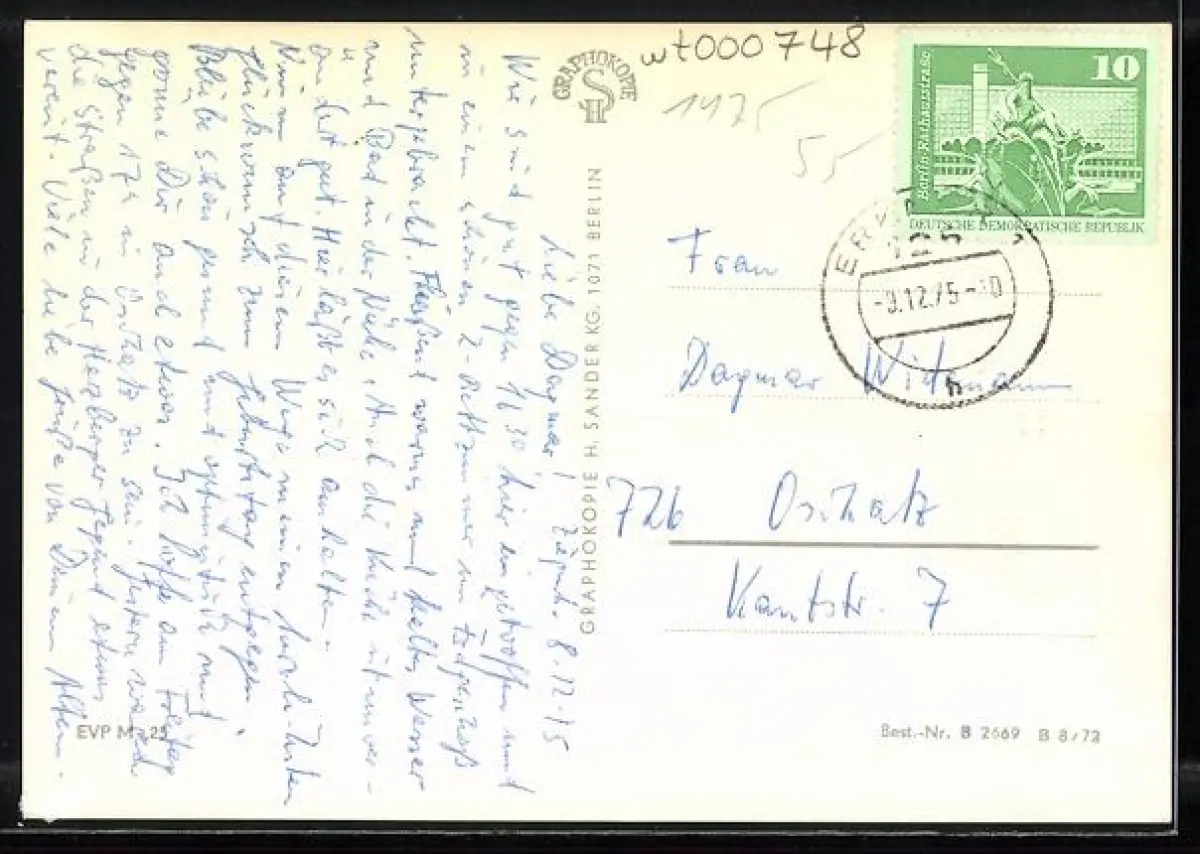 wt000748
1475
55
GRAPHOKOPIE
H S
10
Berlin-Rathausstraße
DEUTSCHE DEMOKRATISCHE REPUBLIK
ERK
125
-9.12.75-10
h
Liebe Dagmar! 8.12.75
Wir sind gut gegen 16 30 hier eingetroffen und
in einem schönen 2-Bettzimmer im Erdgeschoß
untergebracht. Fließend warmes und kaltes Wasser
und Bad in der Nähe. Auch die Küche ist
u.
gut. Hier läßt es sich aushalten.
Nimm auf diesem Wege meinen herzlichsten
Glückwunsch zum Geburtstag entgegen.
Bleibe schön gesund und optimistisch und
gönne Dir auch etwas. Ich hoffe am Freitag
gegen 17h in Oschatz zu sein. Gestern waren
die Straßen in der Herzberger Gegend etwas
vereist. Viele liebe Grüße von Deinem Alten.
GRAPHOKOPIE H. SANDER KG. 1071 BERLIN
Frau
Dagmar Widmann
726 Oschatz
Kantstr. 7
EVP M -,25
Best.-Nr. B 2669 B 8/72